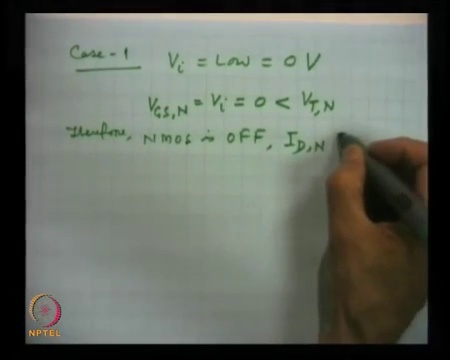 Case-1 V_i = Low = 0 V
V_{GS,N} = V_i = 0 < V_{T,N}
Therefore, NMOS is OFF, I_{D,N}
NPTEL